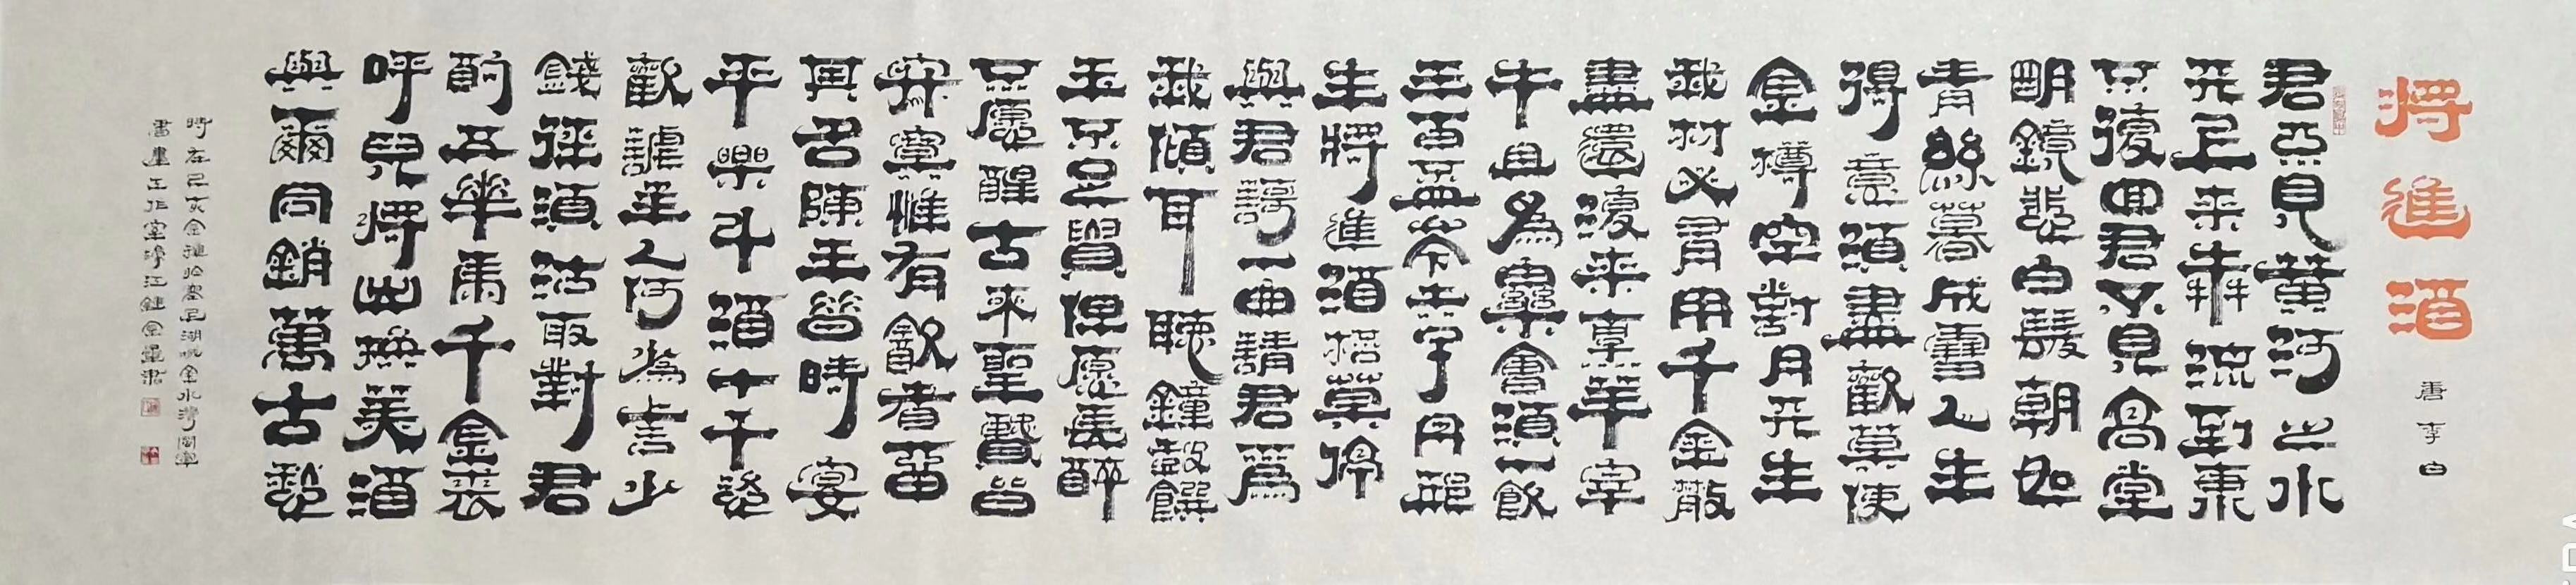 將進酒
唐 李白
君不見黃河之水
天上来奔流到東
不復回君不見高堂
明鏡悲白髮朝如
青絲暮成雪人生
得意須盡歡莫使
金樽空對月天生
我材必有用千金散
盡還復来烹羊宰
牛且為樂會須一飲
三百盃岑夫子丹邱
生將進酒杯莫停
與君謌一曲請君爲
我傾耳聽鐘鼓饌
玉不足貴但願長醉
不願醒古来聖賢皆
寂寞惟有飲者留
其名陳王昔時宴
平樂斗酒十千恣
歡謔主人何為言少
錢徑須沽取對君
酌五華馬千金裘
呼兒將出換美酒
與爾同銷萬古愁
時在己亥金湖金水灣
書畫工作室江